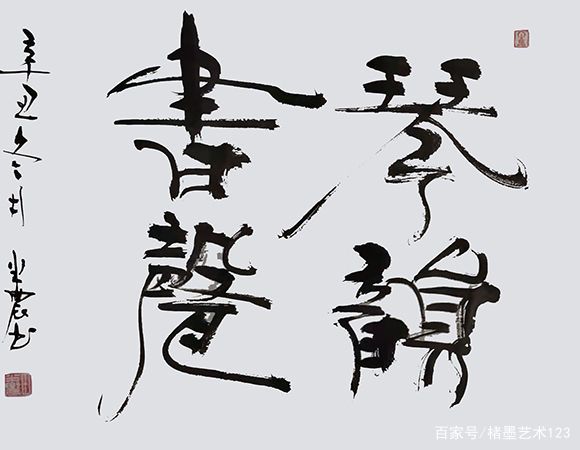 琴韻
書聲
辛丑冬
百家号/楮墨艺术123